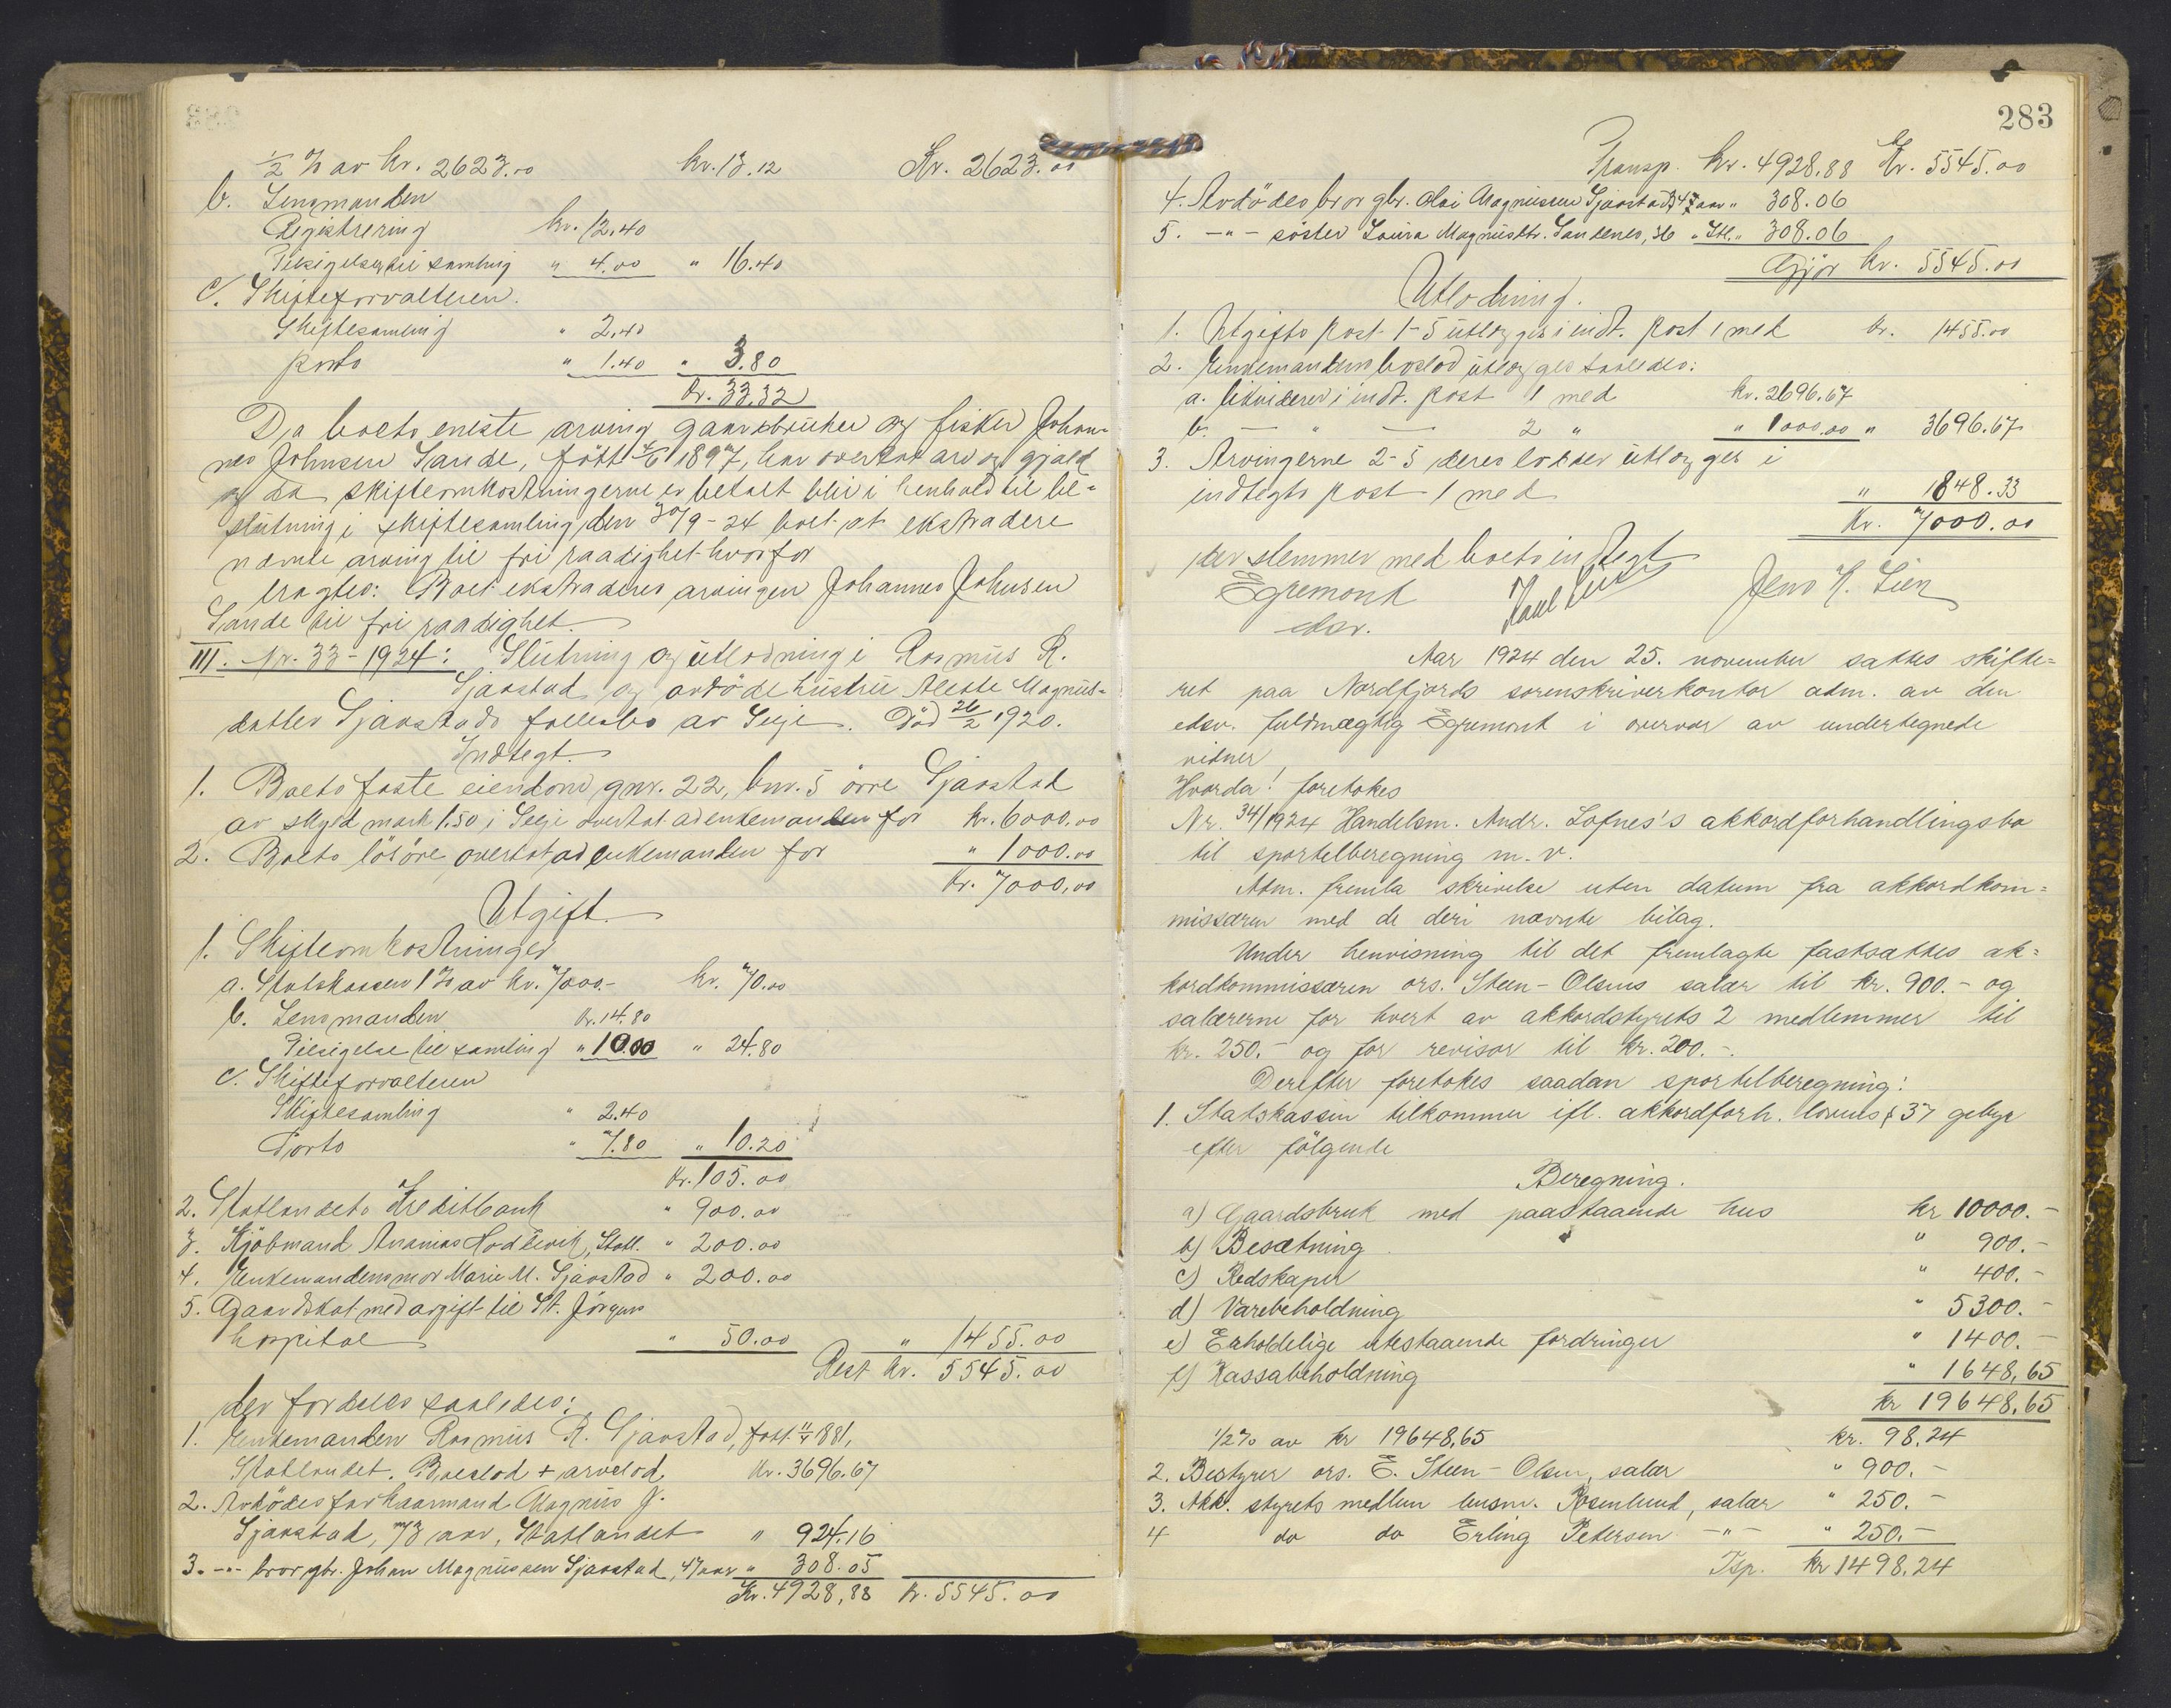 ½ % av kr. 2623.00 kr. 13.12 Kr. 2623.00
b. Lensmanden
Registrering kr. 12.40
Tilsigelser til samling " 4.00 " 16.40
c. Skifteforvalteren.
Skiftesamling " 2.40
porto " 1.40 " 3.80
kr. 33.32
Da boets eneste arving gaardbruker og fisker Johan-
nes Johnsen Sande, født 4/6 1897, har overtat arv og gjæld
og da skifteomkostningerne er betalt blir i henhold til be-
slutning i skiftesamling den 30/9-24 boet at ekstradere
nævnte arving til fri raadighet hvorfor
eragtes: Boet ekstraderes arvingen Johannes Johnsen
Sande til fri raadighet.
III. Nr. 33-1924: Slutning og utlodning i Rasmus R.
Sjaastad og avdøde hustru Aleste Magnus-
datter Sjaastads fællesbo av Selje. Død 26/2 1920.
Indtegt.
1. Boets faste eiendom, gnr. 22, bnr. 5 øvre Sjaastad
av skyld mark 1.50 i Selje overtat av enkemanden for kr. 6000.00
2. Boets løsøre overtat av enkemanden for " 1000.00
kr. 7000.00
Utgift.
1. Skifteomkostninger
a. Statskassen 1 % av kr. 7000.- kr. 70.00
b. Lensmanden kr. 14.80
Tilsigelse til samling " 10.00 " 24.80
c. Skifteforvalteren
Skiftesamling " 2.40
Porto " 7.80 " 10.20
kr. 105.00
2. Statlandets Kreditbank " 900.00
3. Kjøbmand Ananias Hoddevik, Statl. " 200.00
4. Enkemandens mor Marie M. Sjaastad " 200.00
5. Gaardskat med avgift til St. Jørgens
hospital " 50.00 " 1455.00
Rest kr. 5545.00
der fordeles saaledes:
1. Enkemanden Rasmus R. Sjaastad, født 11/4 1881,
Statlandet. Boeslod + arvelod, kr. 3696.67
2. Avdødes far kaarmand Magnus J.
Sjaastad, 73 aar, Statlandet " 924.16
3. -"- bror gbr. Johan Magnussen Sjaastad, 47 aar " 308.05
Kr. 4928,88 kr. 5545.00
283
Transp. kr. 4928.88 Kr. 5545.00
4. Avdødes bror gbr. Magnussen Sjaastad, aar " 308.06
5. -"- søster Lovra Magnusdtr. Sandenes, 36 " Stl. " 308.06
Gjør kr. 5545.00
Utlodning.
1. Utgifts post 1-5 utlægges i indt. post 1 med kr. 1455.00
2. Enkemandens boslod utlægges saaledes:
a. likviderer i indt. post 1 med kr. 2696.67
b. — " — 2 " " 1000.00 " 3696.67
3. Arvingerne 2-5 deres lodder utlægges i
indtegts post 1 med " 1848.33
Kr. 7000.00
der stemmer med boets indtegt
Egremont Jens H. Lien
edsv.
Aar 1924 den 25. november sattes skifte=
ret paa Nordfjords sorenskriverkontor adm. av den
edsv. fuldmægtig Egremont i overvær av undertegnede
vidner,
Hvorda! foretokes
Nr. 34/1924 Handelsm. Andr. Lofnes's akkordforhandlingsbo
til sportelberegning m. v.
Adm. fremla skrivelse uten datum fra akkordkom=
missæren med de deri nævnte bilag.
Under henvisning til det fremlagte fastsættes ak=
kordkommissæren ors. Steen-Olsens salær til kr. 900.- og
salærerne for hvert av akkordstyrets 2 medlemmer til
kr. 250.- og for revisor til kr. 200.-.
Derefter foretokes saadan sportelberegning:
1. Statskassen tilkommer ifl. akkordforh. lovens § 37 gebyr
efter følgende
Beregning.
a) Gaardsbruk med paastaaende hus kr 10000.-
b) Besætning " 900.-
c) Redskaper " 400.-
d) Varebeholdning " 5300.-
e) Erholdelige utestaaende fordringer " 1400.-
f) Kassabeholdning " 1648,65
kr 19648,65
1/2 % av kr 19648,65 kr. 98,24
2. Bestyrer ors. E. Steen-Olsen, salær " 900.-
3. Akk. styrets medlem Rosenlund, salær " 250.-
4 do do Erling Petersen -"- " 250.-
Tsp. kr 1498,24